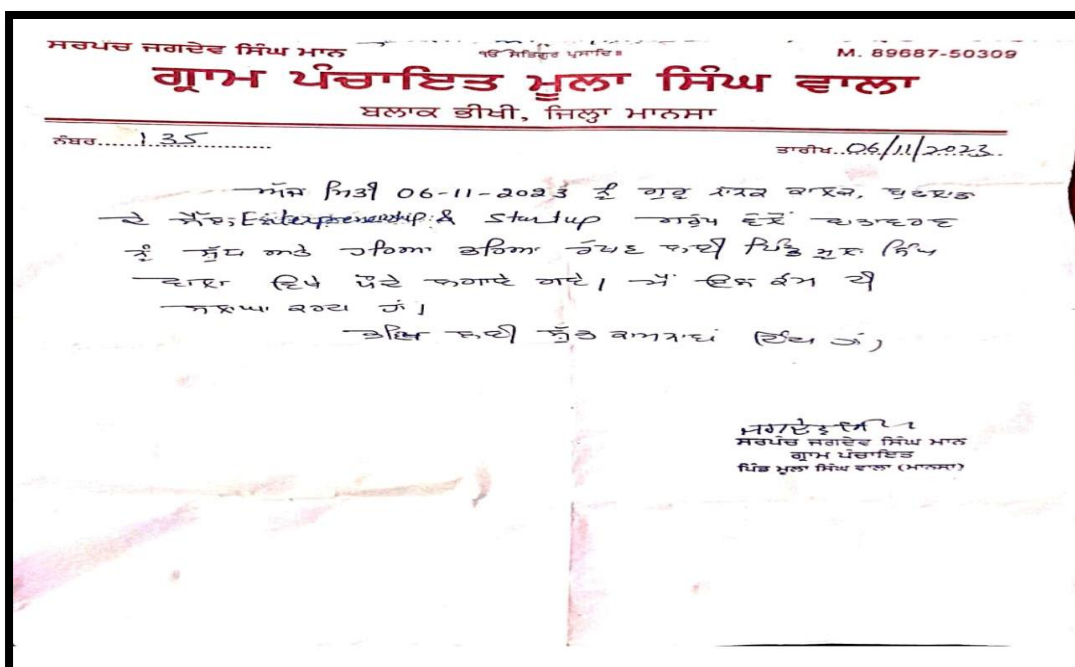 ਸਰਪੰਚ ਜਗਦੇਵ ਸਿੰਘ ਮਾਨ
ੴ ਸਤਿਗੁਰ ਪ੍ਰਸਾਦਿ॥
M. 89687-50309
ਗ੍ਰਾਮ ਪੰਚਾਇਤ ਮੂਲਾ ਸਿੰਘ ਵਾਲਾ
ਬਲਾਕ ਭੀਖੀ, ਜਿਲ੍ਹਾ ਮਾਨਸਾ
ਨੰਬਰ......135..............
ਤਾਰੀਖ..06/11/2023.
ਅੱਜ ਮਿਤੀ 06-11-2023 ਨੂੰ ਗੁਰੂ ਨਾਨਕ ਕਾਲਜ, ਬੁਢਲਾਡਾ
ਦੇ Enterpreneurship & Startup ਗਰੁੱਪ ਵੱਲੋਂ ਵਾਤਾਵਰਣ
ਨੂੰ ਸ਼ੁੱਧ ਅਤੇ ਹਰਿਆ ਭਰਿਆ ਰੱਖਣ ਲਈ ਪਿੰਡ ਮੂਲਾ ਸਿੰਘ
ਵਾਲਾ ਵਿਖੇ ਪੌਦੇ ਲਗਾਏ ਗਏ। ਮੈਂ ਇਸ ਕੰਮ ਦੀ
ਸ਼ਲਾਘਾ ਕਰਦਾ ਹਾਂ।
ਲਈ ਸ਼ੁੱਭ ਕਾਮਨਾਵਾਂ ਦਿੰਦਾ ਹਾਂ।
ਸਰਪੰਚ ਜਗਦੇਵ ਸਿੰਘ ਮਾਨ
ਗ੍ਰਾਮ ਪੰਚਾਇਤ
ਪਿੰਡ ਮੂਲਾ ਸਿੰਘ ਵਾਲਾ (ਮਾਨਸਾ)